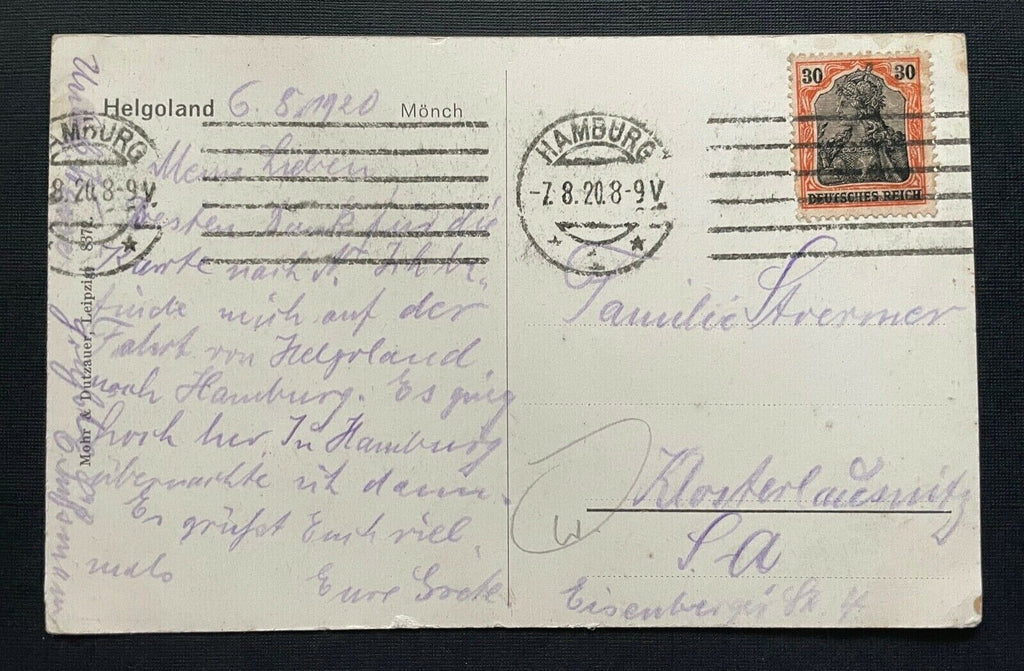 Helgoland 6.8.1920 Mönch
HAMBURG
8.20.8-9V
HAMBURG
-7.8.20.8-9V
30 30
DEUTSCHES REICH
Meine Lieben,
Besten Dank für die
Karte nach N. Ich be-
finde mich auf der
Fahrt von Helgoland
nach Hamburg. Es ging
hoch her. In Hamburg
übernachte ich dann.
Es grüßt Euch viel
mals
Eure Grete
Mohr & Dutzauer, Leipzig 8372.
Familie
Klosterlausnitz
S.A
Eisenberger Str. 4.